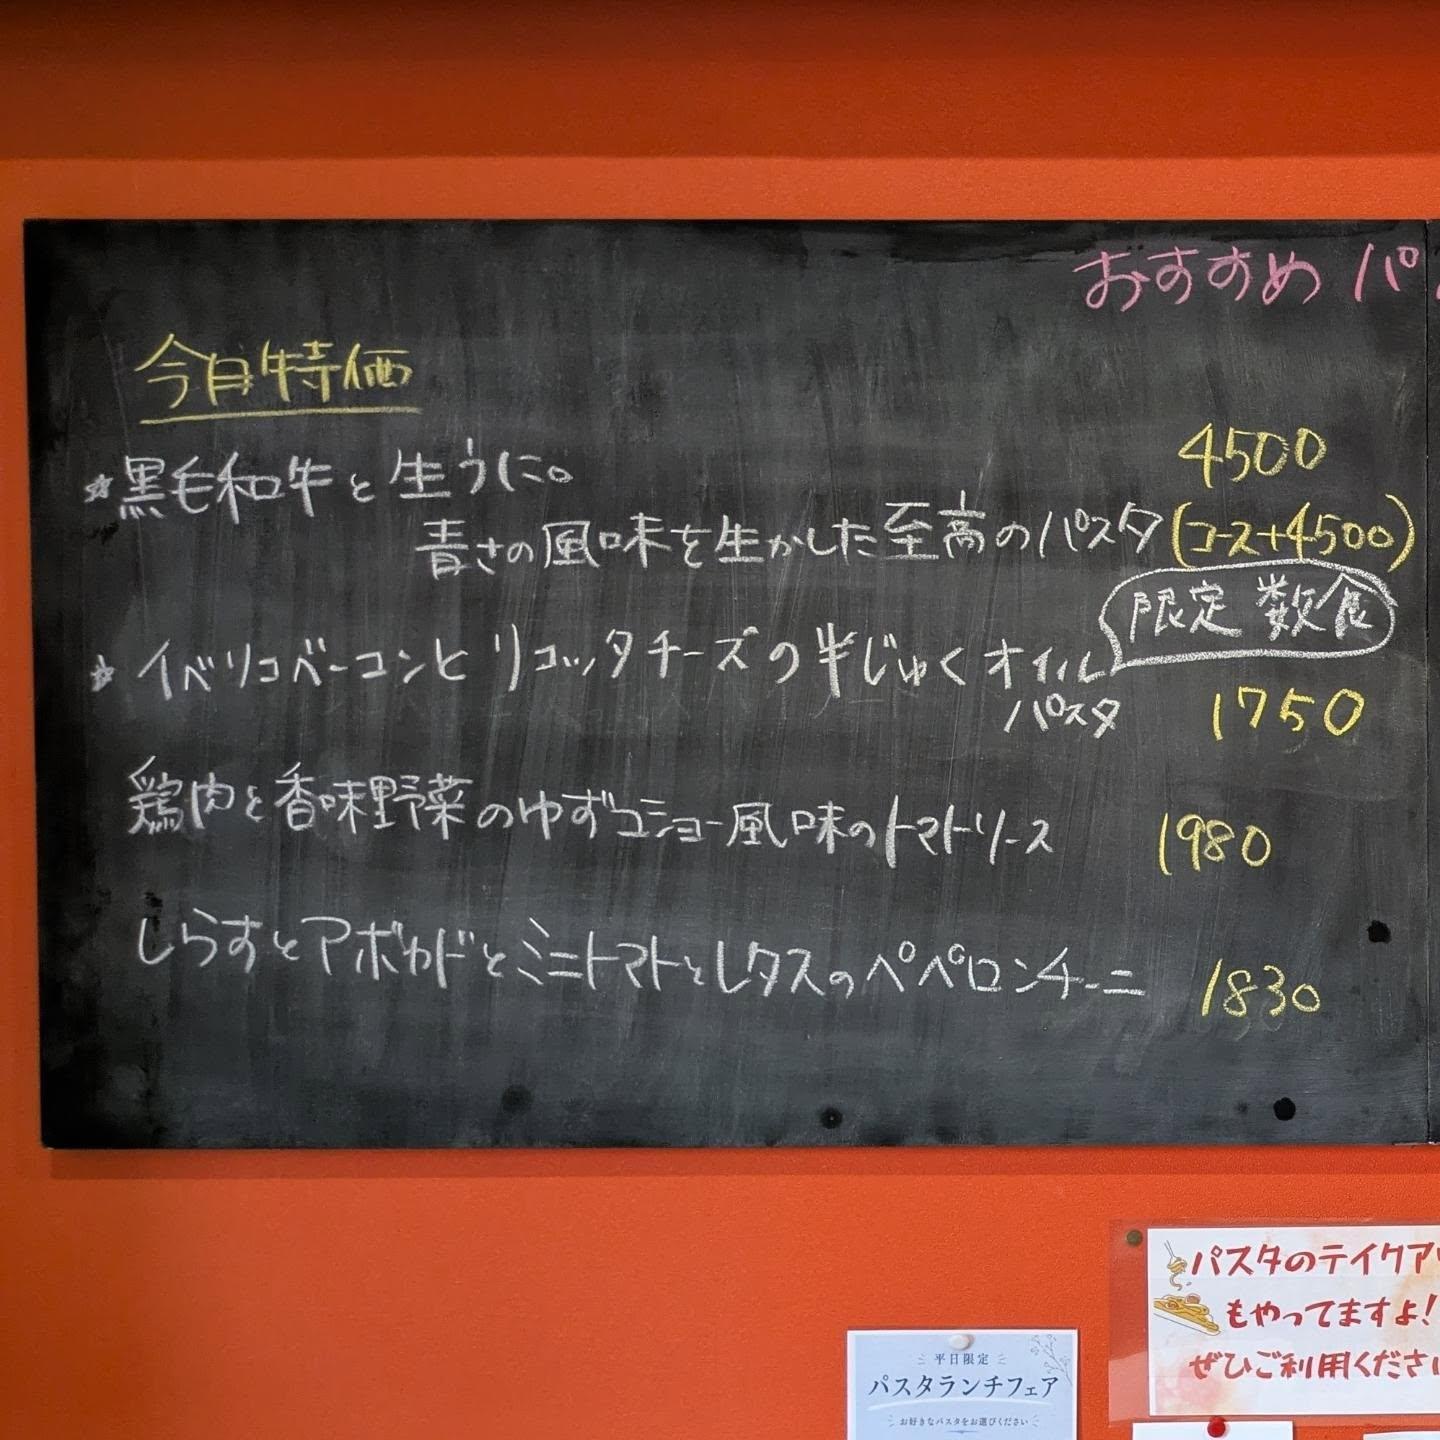 おすすめ パ
今月特価
☆黒毛和牛と生うに。
4500
青さの風味を生かした至高のパスタ(コース+4500)
限定 数食
☆イベリコベーコンとリコッタチーズの半じゅくオイル
パスタ 1750
鶏肉と香味野菜のゆずコショー風味のトマトソース 1980
しらすとアボカドとミニトマトとレタスのペペロンチーニ 1830
パスタのテイクア
もやってますよ!
ぜひご利用くださ
平日限定
パスタランチフェア
お好きなパスタをお選びください